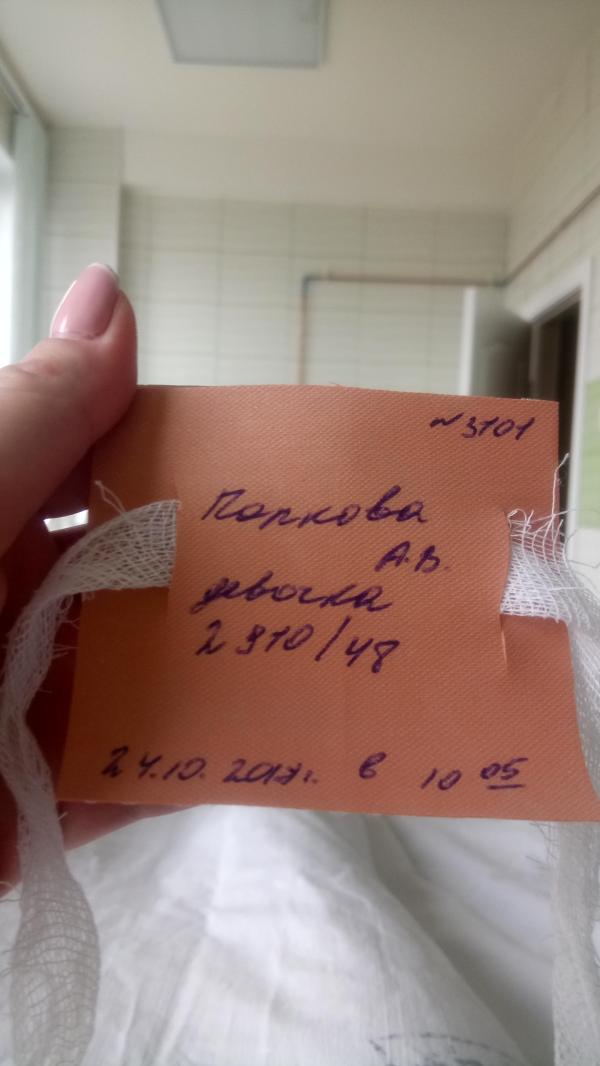 №3101
Паркова
А.В.
девочка
2910/48
24.10.2017г. в 10 05